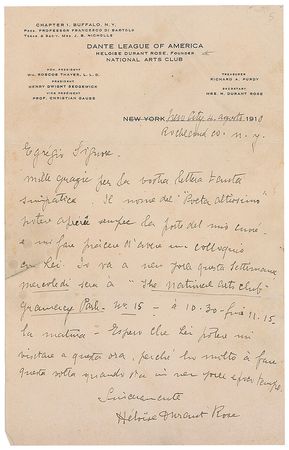 CHAPTER I. BUFFALO, N. Y.
PRES. PROFESSOR FRANCESCO DI BARTOLO
TREAS & SECT. MRS J. B. NICHOLLS
5
DANTE LEAGUE OF AMERICA
HELOISE DURANT ROSE, FOUNDER
NATIONAL ARTS CLUB
HON. PRESIDENT
WM. ROSCOE THAYER, L.L.D.
PRESIDENT
HENRY DWIGHT SEDGWICK
VICE PRESIDENT
PROF. CHRISTIAN GAUSS
TREASURER
RICHARD A. PURDY
SECRETARY
MRS. H. DURANT ROSE
NEW YORK City 4 agosto 1918
Rockland Co. n. y.
Egregio Signore.
Mille grazie per la vostra lettera tanta
simpatica. Il nome del "Poeta altissimo"
aprire sempre la porta del mio cuore
e mi fara piacere d'avere un colloquio
con Lei. Io va a new york questa settimana
mercoledi sera a "The National Arts club"
Gramercy Park. No. 15 – à 10.30 – 11.15
la matina – Espero che Lei potere
visitare a questa ora, perchè ho molto à fare
questa volta quando new york e poco tempo.
Sinceramente
Heloïse Durant Rose